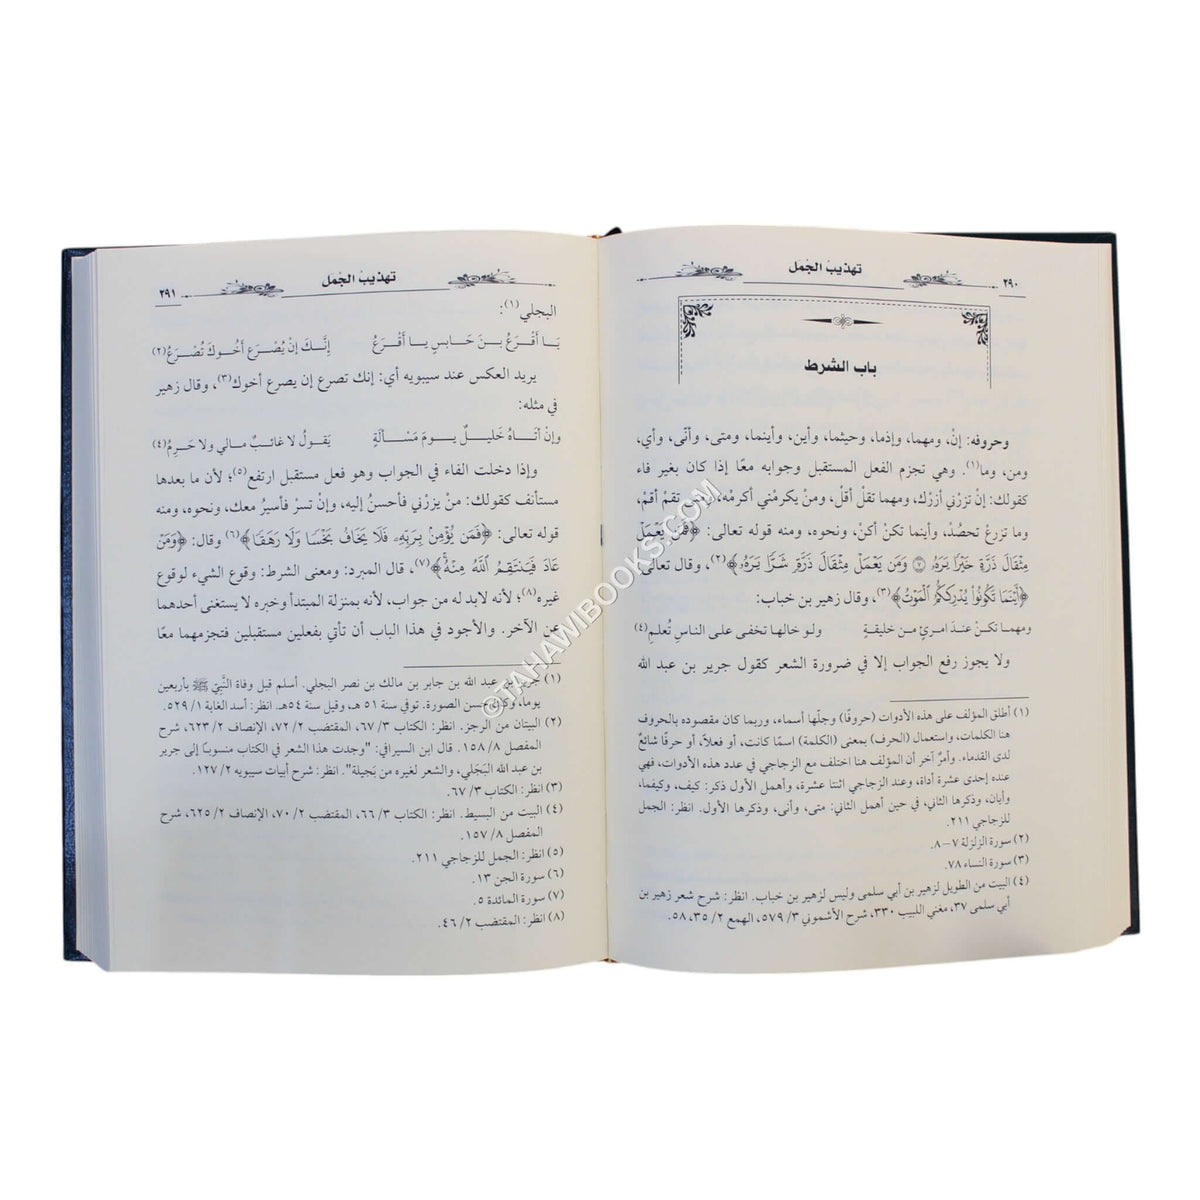 تهذيب الجُمَل
٢٩٠
باب الشرط
وحروفه: إنْ، ومهما، وإذما، وحيثما، وأين، وأينما، ومتى، وأنّى، وأي،
ومن، وما(١). وهي تجزم الفعل المستقبل وجوابه معًا إذا كان بغير فاء
كقولك: إنْ تزرْني أزرْك، ومهما تقلْ أقلْ، ومنْ يكرمْني أكرمْه، ومتى تقمْ أقمْ،
وما تزرعْ تحصُدْ، وأينما تكنْ أكنْ، ونحوه، ومنه قوله تعالى: ﴿فَمَن يَعْمَلْ
مِثْقَالَ ذَرَّةٍ خَيْرًا يَرَهُۥ ۝٧ وَمَن يَعْمَلْ مِثْقَالَ ذَرَّةٍ شَرًّا يَرَهُۥ﴾(٢)، وقال تعالى:
﴿أَيْنَمَا تَكُونُوا۟ يُدْرِككُّمُ ٱلْمَوْتُ﴾(٣)، وقال زهير بن خباب:
ومهما تكنْ عندَ امرئٍ من خليقةٍ ولو خالها تخفى على الناسِ تُعلمِ(٤)
ولا يجوز رفع الجواب إلا في ضرورة الشعر كقول جرير بن عبد الله
(١) أطلق المؤلف على هذه الأدوات (حروفًا) وجلّها أسماء، وربما كان مقصوده بالحروف
هنا الكلمات، واستعمال (الحرف) بمعنى (الكلمة) اسمًا كانت، أو فعلًا، أو حرفًا شائعٌ
لدى القدماء. وأمرٌ آخر أن المؤلف هنا اختلف مع الزجاجي في عدد هذه الأدوات، فهي
عنده إحدى عشرة أداة، وعند الزجاجي اثنتا عشرة، وأهمل الأول ذكر: كيف، وكيفما،
وأيان، وذكرها الثاني، في حين أهمل الثاني: متى، وأنى، وذكرها الأول. انظر: الجمل
للزجاجي ٢١١.
(٢) سورة الزلزلة ٧-٨.
(٣) سورة النساء ٧٨.
(٤) البيت من الطويل لزهير بن أبي سلمى وليس لزهير بن خباب. انظر: شرح شعر زهير بن
أبي سلمى ٣٧، مغني اللبيب ٣٣٠، شرح الأشموني ٣/ ٥٧٩، الهمع ٢/ ٣٥، ٥٨.
تهذيب الجُمَل
٢٩١
البجلي(١):
يَا أَقْرَعُ بنَ حَابسٍ يا أَقْرَعُ إنَّكَ إنْ يُصْرَع أَخُوكَ تُصْرَعُ(٢)
يريد العكس عند سيبويه أي: إنك تصرع إن يصرع أخوك(٣)، وقال زهير
في مثله:
وإنْ أتَاهُ خَليلٌ يومَ مَسْألَةٍ يَقولُ لا غائبٌ مالي ولا حَرِمُ(٤)
وإذا دخلت الفاء في الجواب وهو فعل مستقبل ارتفع(٥)؛ لأن ما بعدها
مستأنف كقولك: منْ يزرْني فأحسنُ إليه، وإنْ تسرْ فأسيرُ معك، ونحوه، ومنه
قوله تعالى: ﴿فَمَن يُؤْمِنۢ بِرَبِّهِۦ فَلَا يَخَافُ بَخْسًا وَلَا رَهَقًا﴾(٦) وقال: ﴿وَمَنْ
عَادَ فَيَنتَقِمُ ٱللَّهُ مِنْهُ﴾(٧)، قال المبرد: ومعنى الشرط: وقوع الشيء لوقوع
غيره(٨)؛ لأنه لابد له من جواب، لأنه بمنزلة المبتدأ وخبره لا يستغنى أحدهما
عن الآخر. والأجود في هذا الباب أن تأتي بفعلين مستقبلين فتجزمهما معًا
(١) جرير بن عبد الله بن جابر بن مالك بن نصر البجلي. أسلم قبل وفاة النَّبيّ ﷺ بأربعين
يوما، وكان حسن الصورة. توفي سنة ٥١هـ، وقيل سنة ٥٤هـ. انظر: أسد الغابة ١/ ٥٢٩.
(٢) البيتان من الرجز. انظر: الكتاب ٣/ ٦٧، المقتضب ٢/ ٧٢، الإنصاف ٢/ ٦٢٣، شرح
المفصل ٨/ ١٥٨. قال ابن السيرافي: "وجدت هذا الشعر في الكتاب منسوبًا إلى جرير
بن عبد الله البَجَلي، والشعر لغيره من بَجيلة". انظر: شرح أبيات سيبويه ٢/ ١٢٧.
(٣) انظر: الكتاب ٣/ ٦٧.
(٤) البيت من البسيط. انظر: الكتاب ٣/ ٦٦، المقتضب ٢/ ٧٠، الإنصاف ٢/ ٦٢٥، شرح
المفصل ٨/ ١٥٧.
(٥) انظر: الجمل للزجاجي ٢١١.
(٦) سورة الجن ١٣.
(٧) سورة المائدة ٥.
(٨) انظر: المقتضب ٢/ ٤٦.
©TAHAWIBOOKS.COM